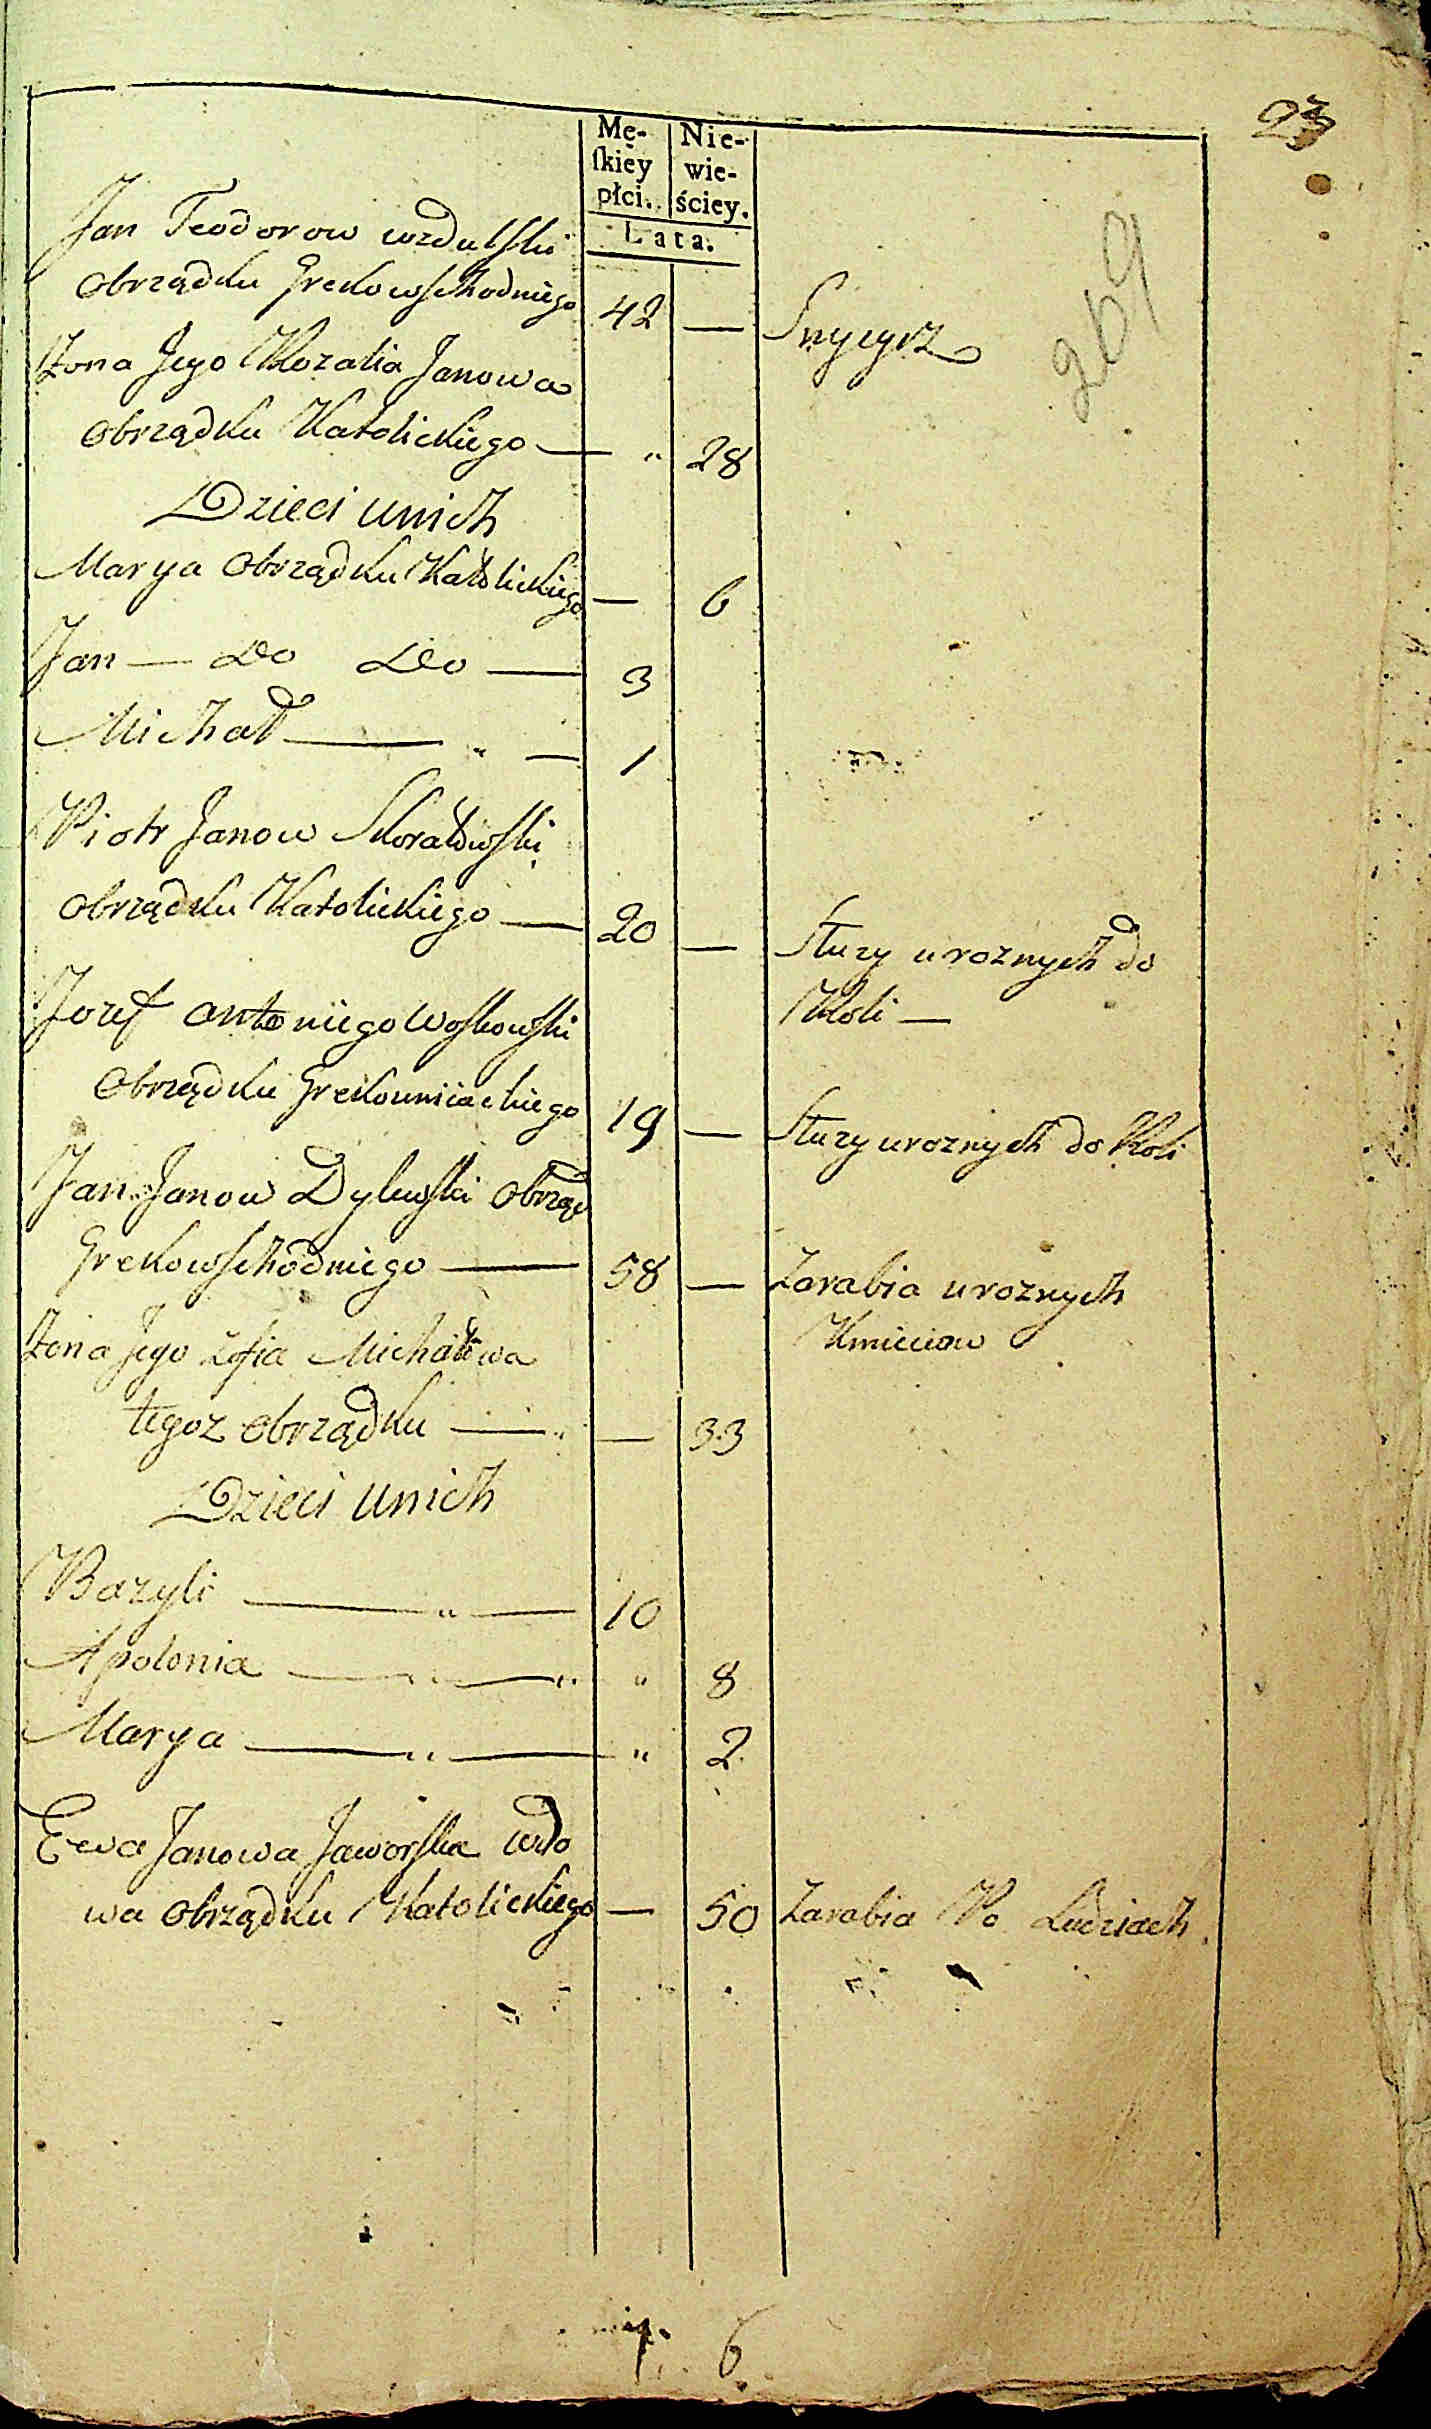 23
269
Mę-
skiey
płci.
Nie-
wie-
ściey.
Lata.
Jan Teodorow wzdulski
Obrządku Grekowschodniego 42 — Snycyrz
Żona Jego Rozalia Janowa
Obrządku Katolickiego — " 28
Dzieci unich
Marya Obrządku Katolickiego — 6
Jan — Do Do — 3
Michał — " — 1
Piotr Janow Skoratowski
Obrządku Katolickiego — 20 — Służy uroznych do
Roli —
Jozef Antoniego Woskowski
Obrządku Grekouniackiego 19 — Służy uroznych do Roli
Jan Janow Dylewski Obrząd
Grekowschodniego — 58 — Zarabia uroznych
Kmieciow
Żona Jego Zofia Michałowa
tegoz Obrządku — " — 33
Dzieci unich
Bazyli — " — 10
Apolonia — " — " " 8
Marya — " — " 2
Ewa Janowa Jaworska wdo
wa Obrządku Katolickiego — 50 Zarabia Po Ludziach
6